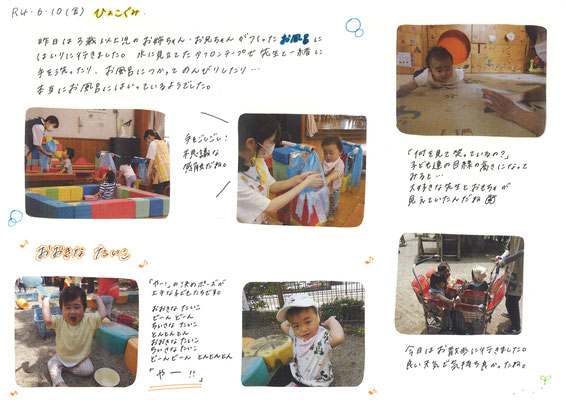 R4.6.10(金) ひよこぐみ
昨日は3歳以上児のお姉ちゃん・お兄ちゃんがつくったお風呂に
はいりに行きました。水に見立てたタフロンテープで先生と一緒に
手を洗ったり、お風呂につかってのんびりしたり…
本当にお風呂にはいっているようでした。
手をごしごし!
不思議な
感触だね。
「何を見て笑っているの?」
子ども達の目線の高さになって
みると…
大好きな先生とおもちゃが
見えていたんだね
おおきな たいこ
「やー!」の決めポーズが
上手な子どもたちです。
おおきな たいこ
どーん どーん
ちいさな たいこ
とんとんとん
おおきな たいこ
ちいさな たいこ
どーんどーん とんとんとん
「やー!!」
今日はお散歩に行きました。
良い天気で気持ち良かったね。